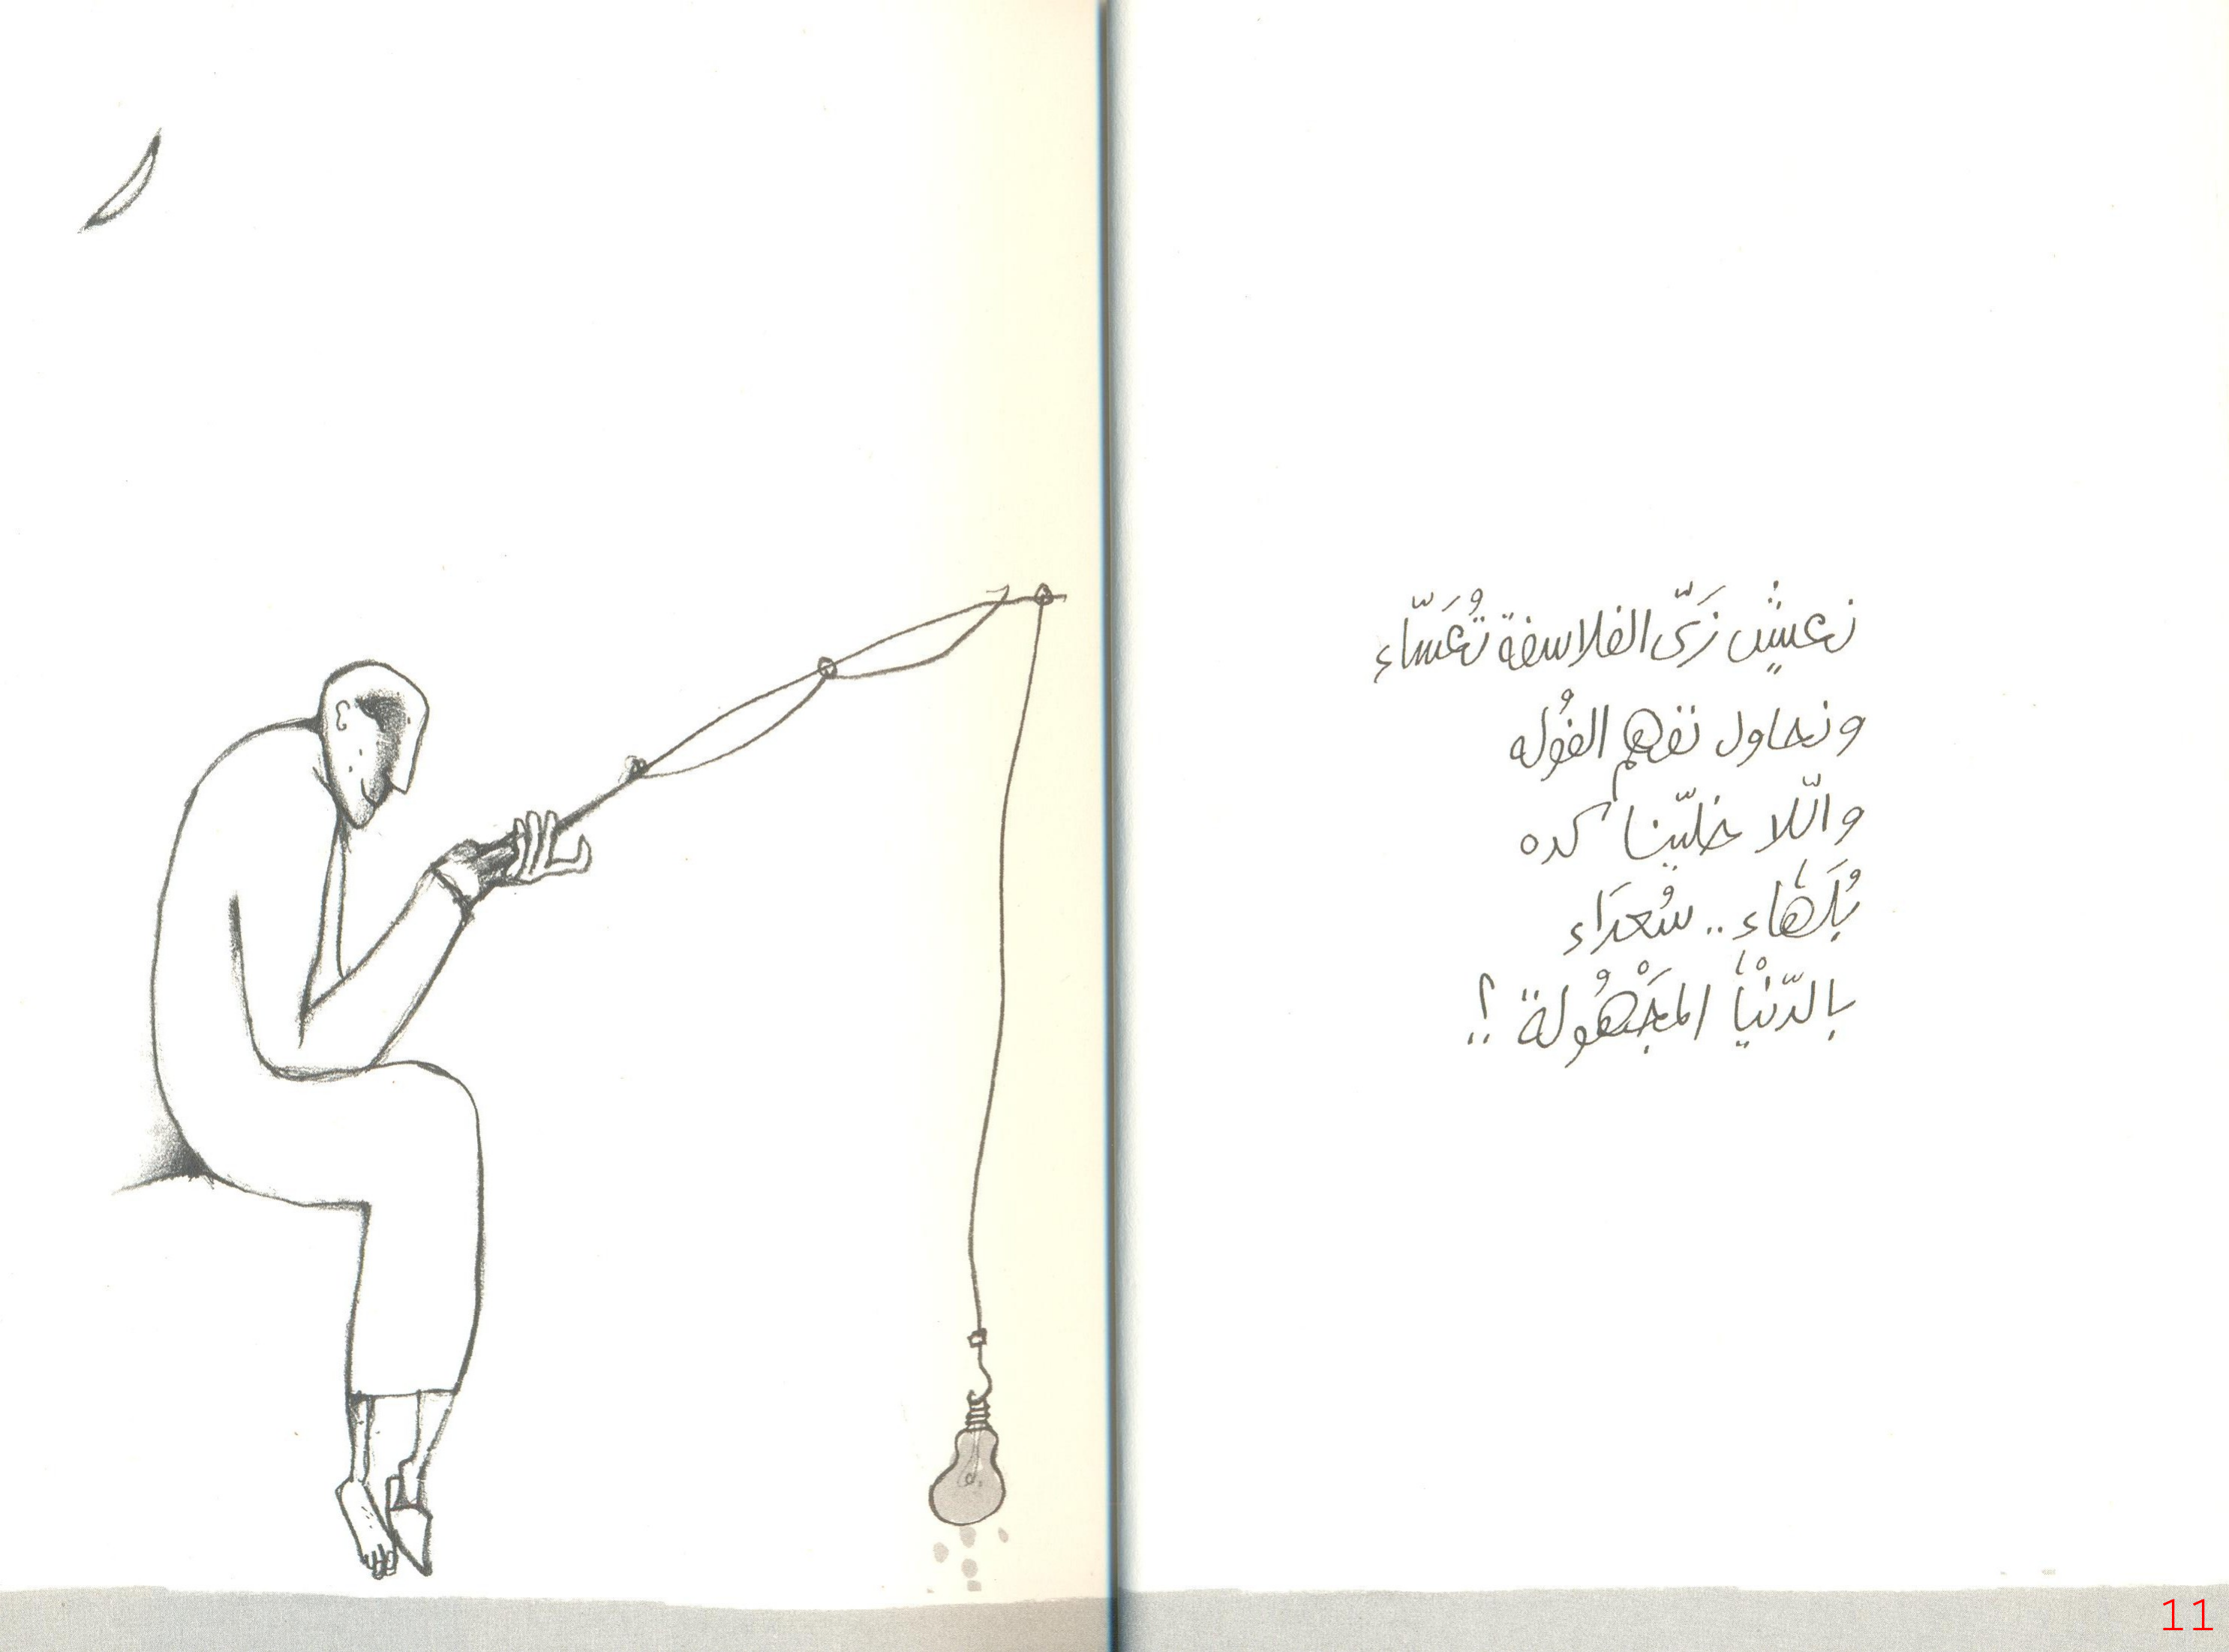 نعيش زَىّ الفلاسفة تُعَسَّاء
ونحاول نفهم الفُوله
والّلا خلّينا كده
بُلَهَاء .. سُعدَاء
بالدّنْيا المجْهُولة ؟!
11